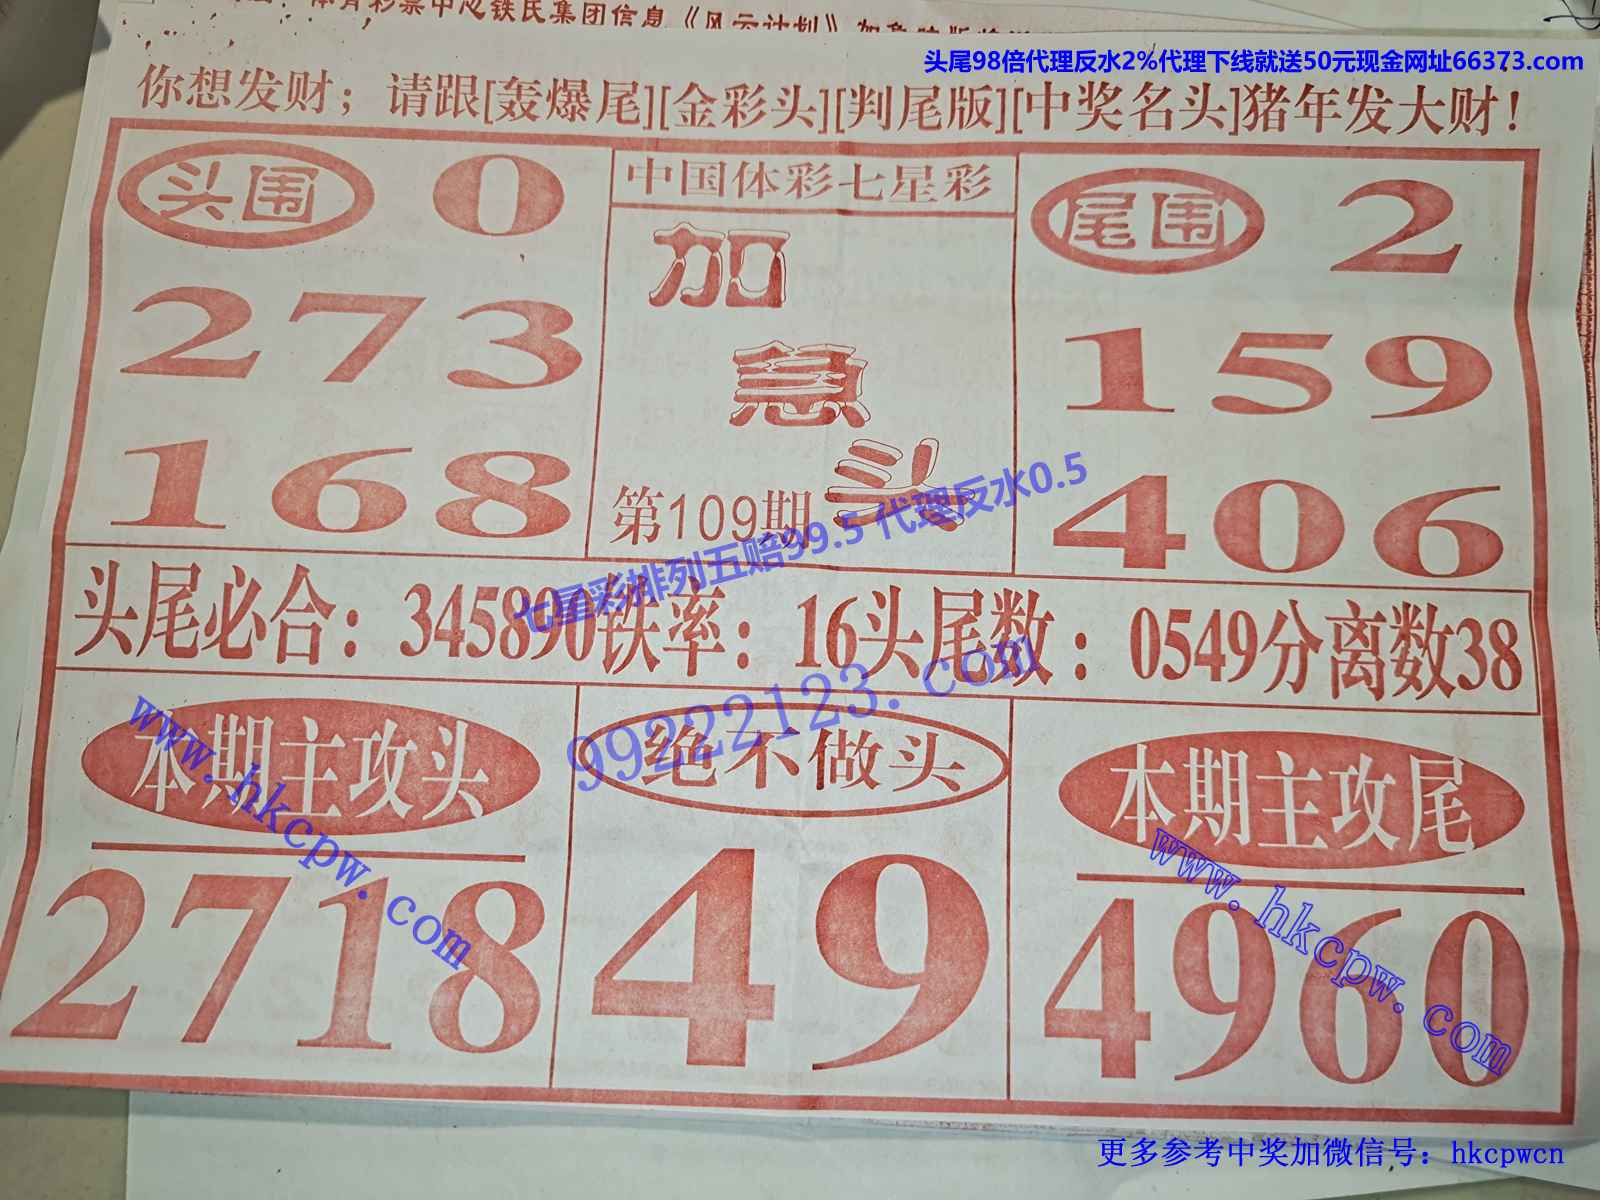 体育彩票中心铁民集团信息《风云计划》
头尾98倍代理反水2%代理下线就送50元现金网址66373.com
你想发财；请跟[轰爆尾][金彩头][判尾版][中奖名头]猪年发大财！
头围 0
273
168
中国体彩七星彩
加
急
头
第109期
尾围 2
159
406
七星彩排列五赔99.5 代理反水0.5
头尾必合：345890铁率：16头尾数：0549分离数38
99222123.com
本期主攻头
2718
绝不做头
49
本期主攻尾
4960
www.hkcpw.com
www.hkcpw.com
更多参考中奖加微信号：hkcpwcn